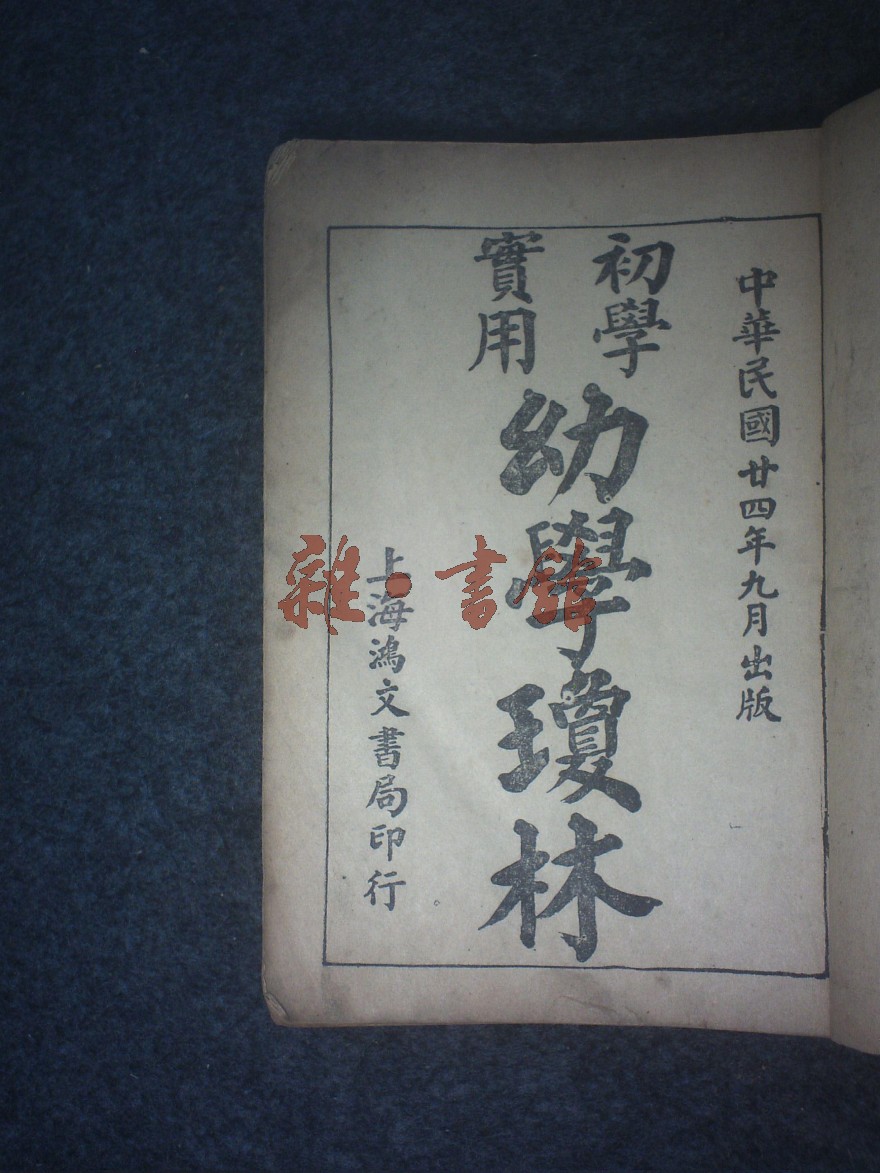 中華民國廿四年九月出版
初學
實用
幼學瓊林
上海鴻文書局印行
雜·書館